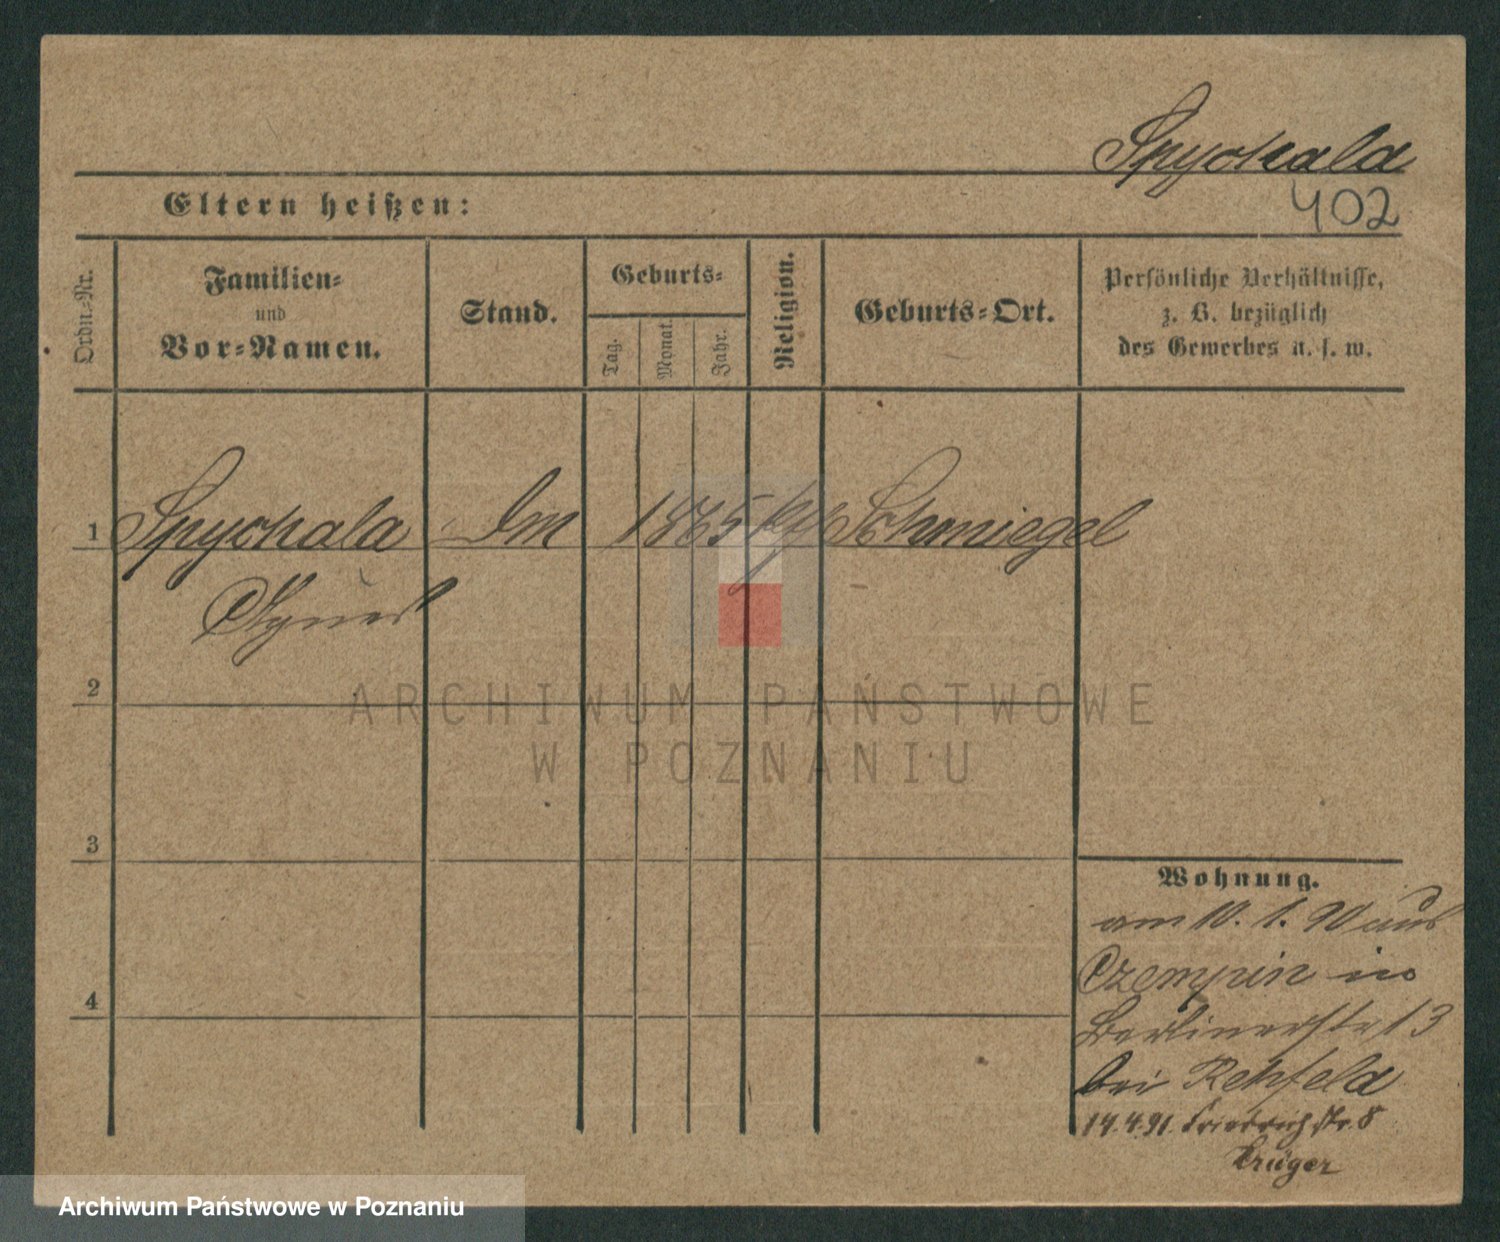 Spychala
402
Eltern heißen:
Ordn.-Nr.
Familien-
und
Vor-Namen.
Stand.
Geburts-
Tag.
Monat.
Jahr.
Religion.
Geburts-Ort.
Persönliche Verhältnisse,
z. B. bezüglich
des Gewerbes u. s. w.
1 Spychala 1865 Schmiegel
Agnes
2
3
4
ARCHIWUM PAŃSTWOWE
W POZNANIU
Wohnung.
am 10. 1. 90 aus
Czempin in
Berlinerstr 13
bei Rehfeld
14.4.91. Friedrichstr. 8
Krüger
Archiwum Państwowe w Poznaniu